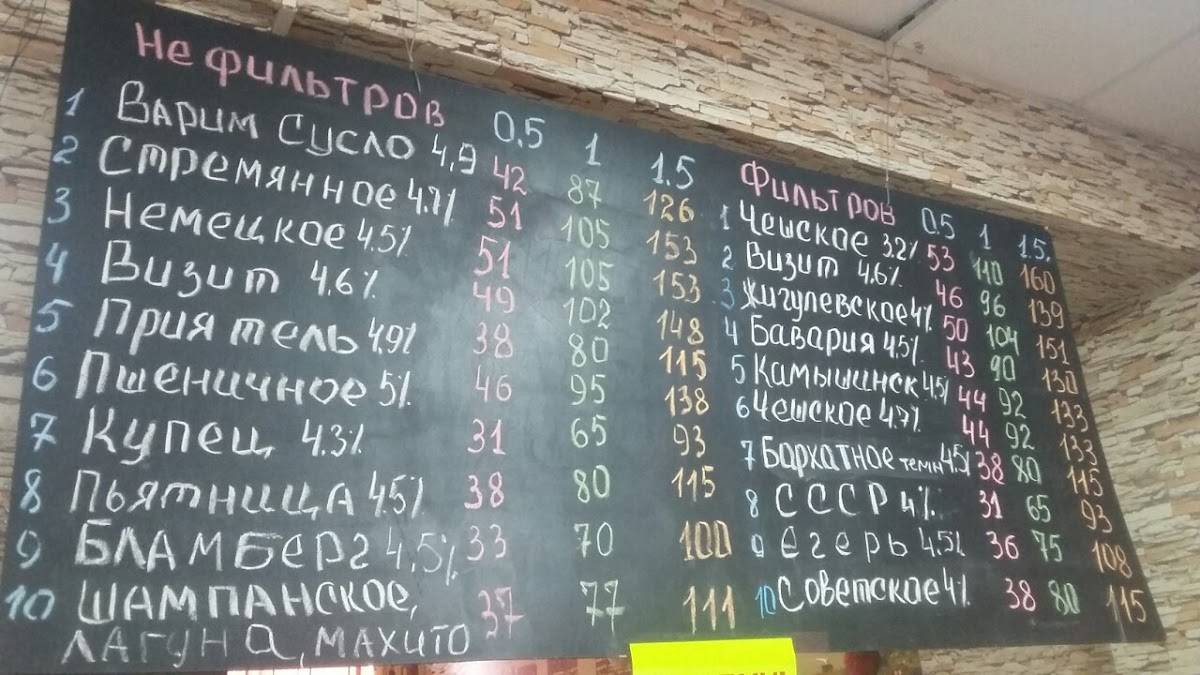 Не фильтров 0,5 1 1.5
1 Варим сусло 4,9 42 87 126
2 Стремянное 4.7% 51 105 153
3 Немецкое 4.5% 51 105 153
4 Визит 4.6% 49 102 148
5 Приятель 4.9% 38 80 115
6 Пшеничное 5% 46 95 138
7 Купец 4.3% 31 65 93
8 Пьятница 4.5% 38 80 115
9 Бламберг 4.5% 33 70 100
10 Шампанское, 37 77 111
Лагуна, махито
Фильтров 0.5 1 1.5.
1 Чешское 3.2% 53 110 160
2 Визит 4.6% 46 96 139
3 Жигулевское 4% 50 104 151
4 Бавария 4.5% 43 90 130
5 Камышинск 4.5% 44 92 133
6 Чешское 4.7% 44 92 133
7 Бархатное темн 4.5% 38 80 115
8 СССР 4% 31 65 93
9 Егерь 4.5% 36 75 108
10 Советское 4% 38 80 115